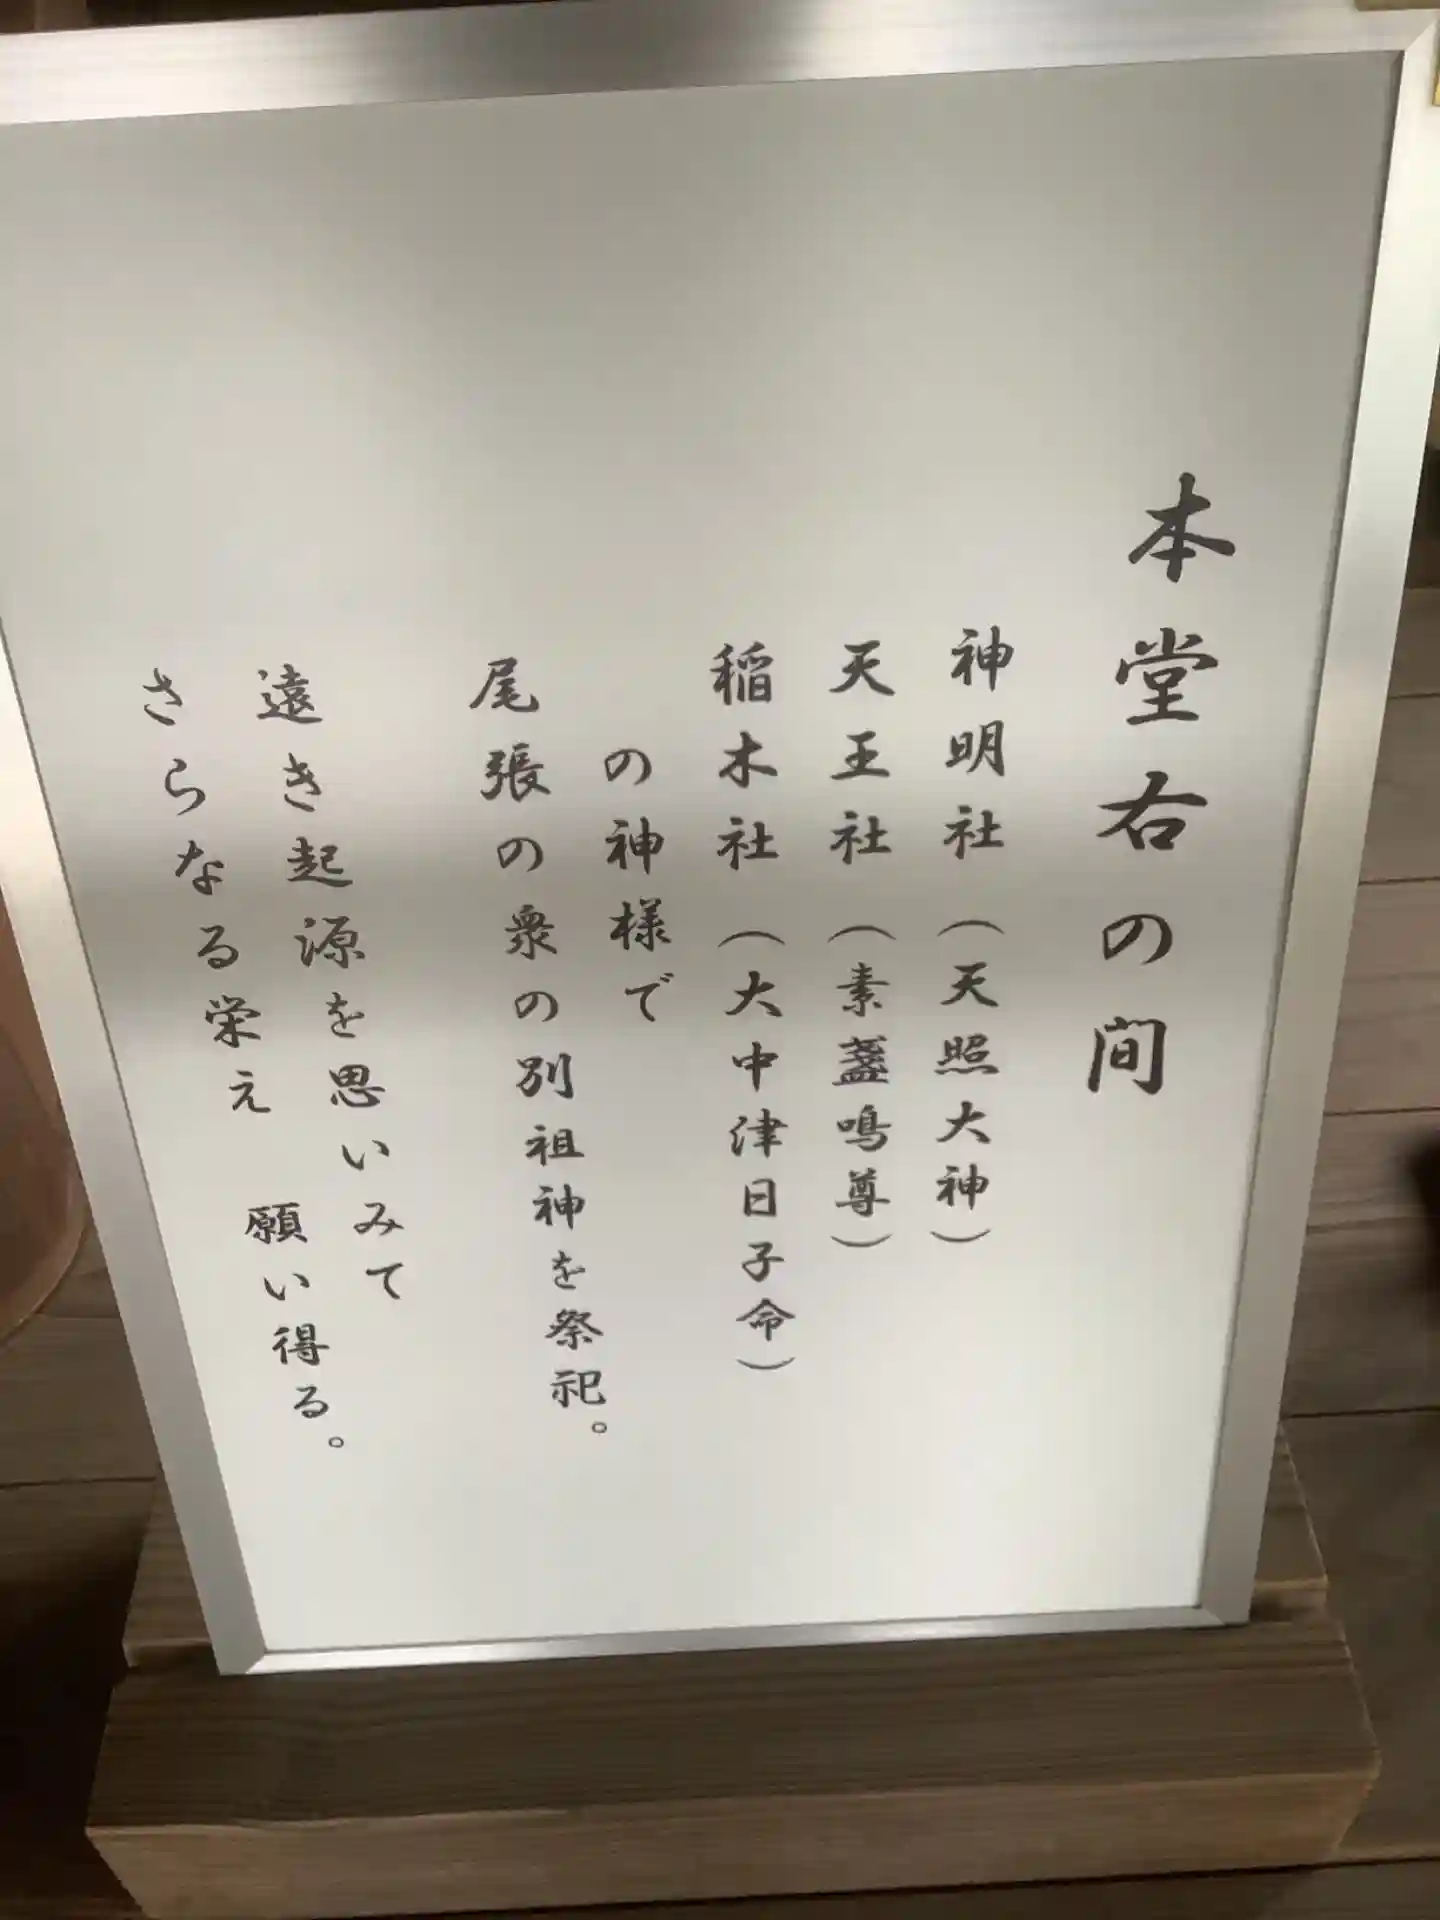 本堂右の間
神明社（天照大神）
天王社（素盞鳴尊）
稲木社（大中津日子命）
の神様で
尾張の衆の別祖神を祭祀。
遠き起源を思いみて
さらなる栄え　願い得る。